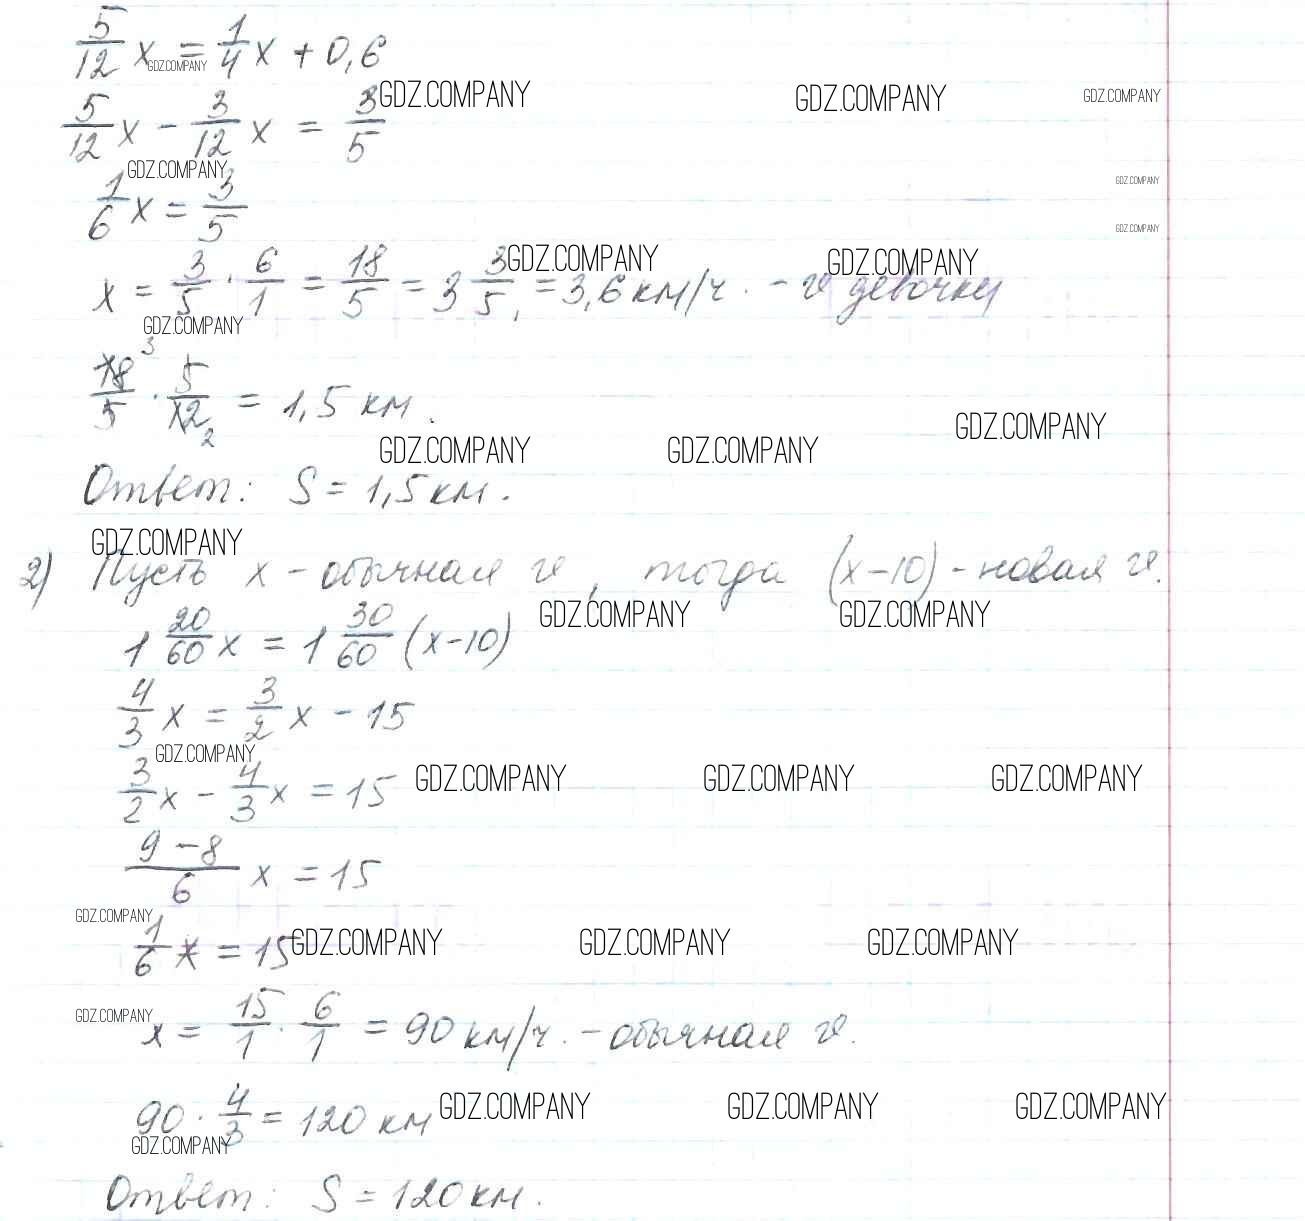 5/12 x = 1/4 x + 0,6
GDZ.COMPANY
GDZ.COMPANY GDZ.COMPANY GDZ.COMPANY
5/12 x - 3/12 x = 3/5
GDZ.COMPANY GDZ.COMPANY
1/6 x = 3/5
GDZ.COMPANY
GDZ.COMPANY GDZ.COMPANY
x = 3/5 · 6/1 = 18/5 = 3 3/5 = 3,6 км/ч. - v девочки
GDZ.COMPANY
18/5 · 5/12 = 1,5 км.
3 2
GDZ.COMPANY GDZ.COMPANY GDZ.COMPANY
Ответ: S = 1,5 км.
GDZ.COMPANY
2) Пусть x - обычная v, тогда (x-10) - новая v.
GDZ.COMPANY GDZ.COMPANY
1 20/60 x = 1 30/60 (x-10)
4/3 x = 3/2 x - 15
GDZ.COMPANY GDZ.COMPANY GDZ.COMPANY GDZ.COMPANY
3/2 x - 4/3 x = 15
(9-8)/6 x = 15
GDZ.COMPANY
1/6 x = 15
GDZ.COMPANY GDZ.COMPANY GDZ.COMPANY
GDZ.COMPANY
x = 15/1 · 6/1 = 90 км/ч. - обычная v.
90 · 4/3 = 120 км
GDZ.COMPANY GDZ.COMPANY GDZ.COMPANY
GDZ.COMPANY
Ответ: S = 120 км.